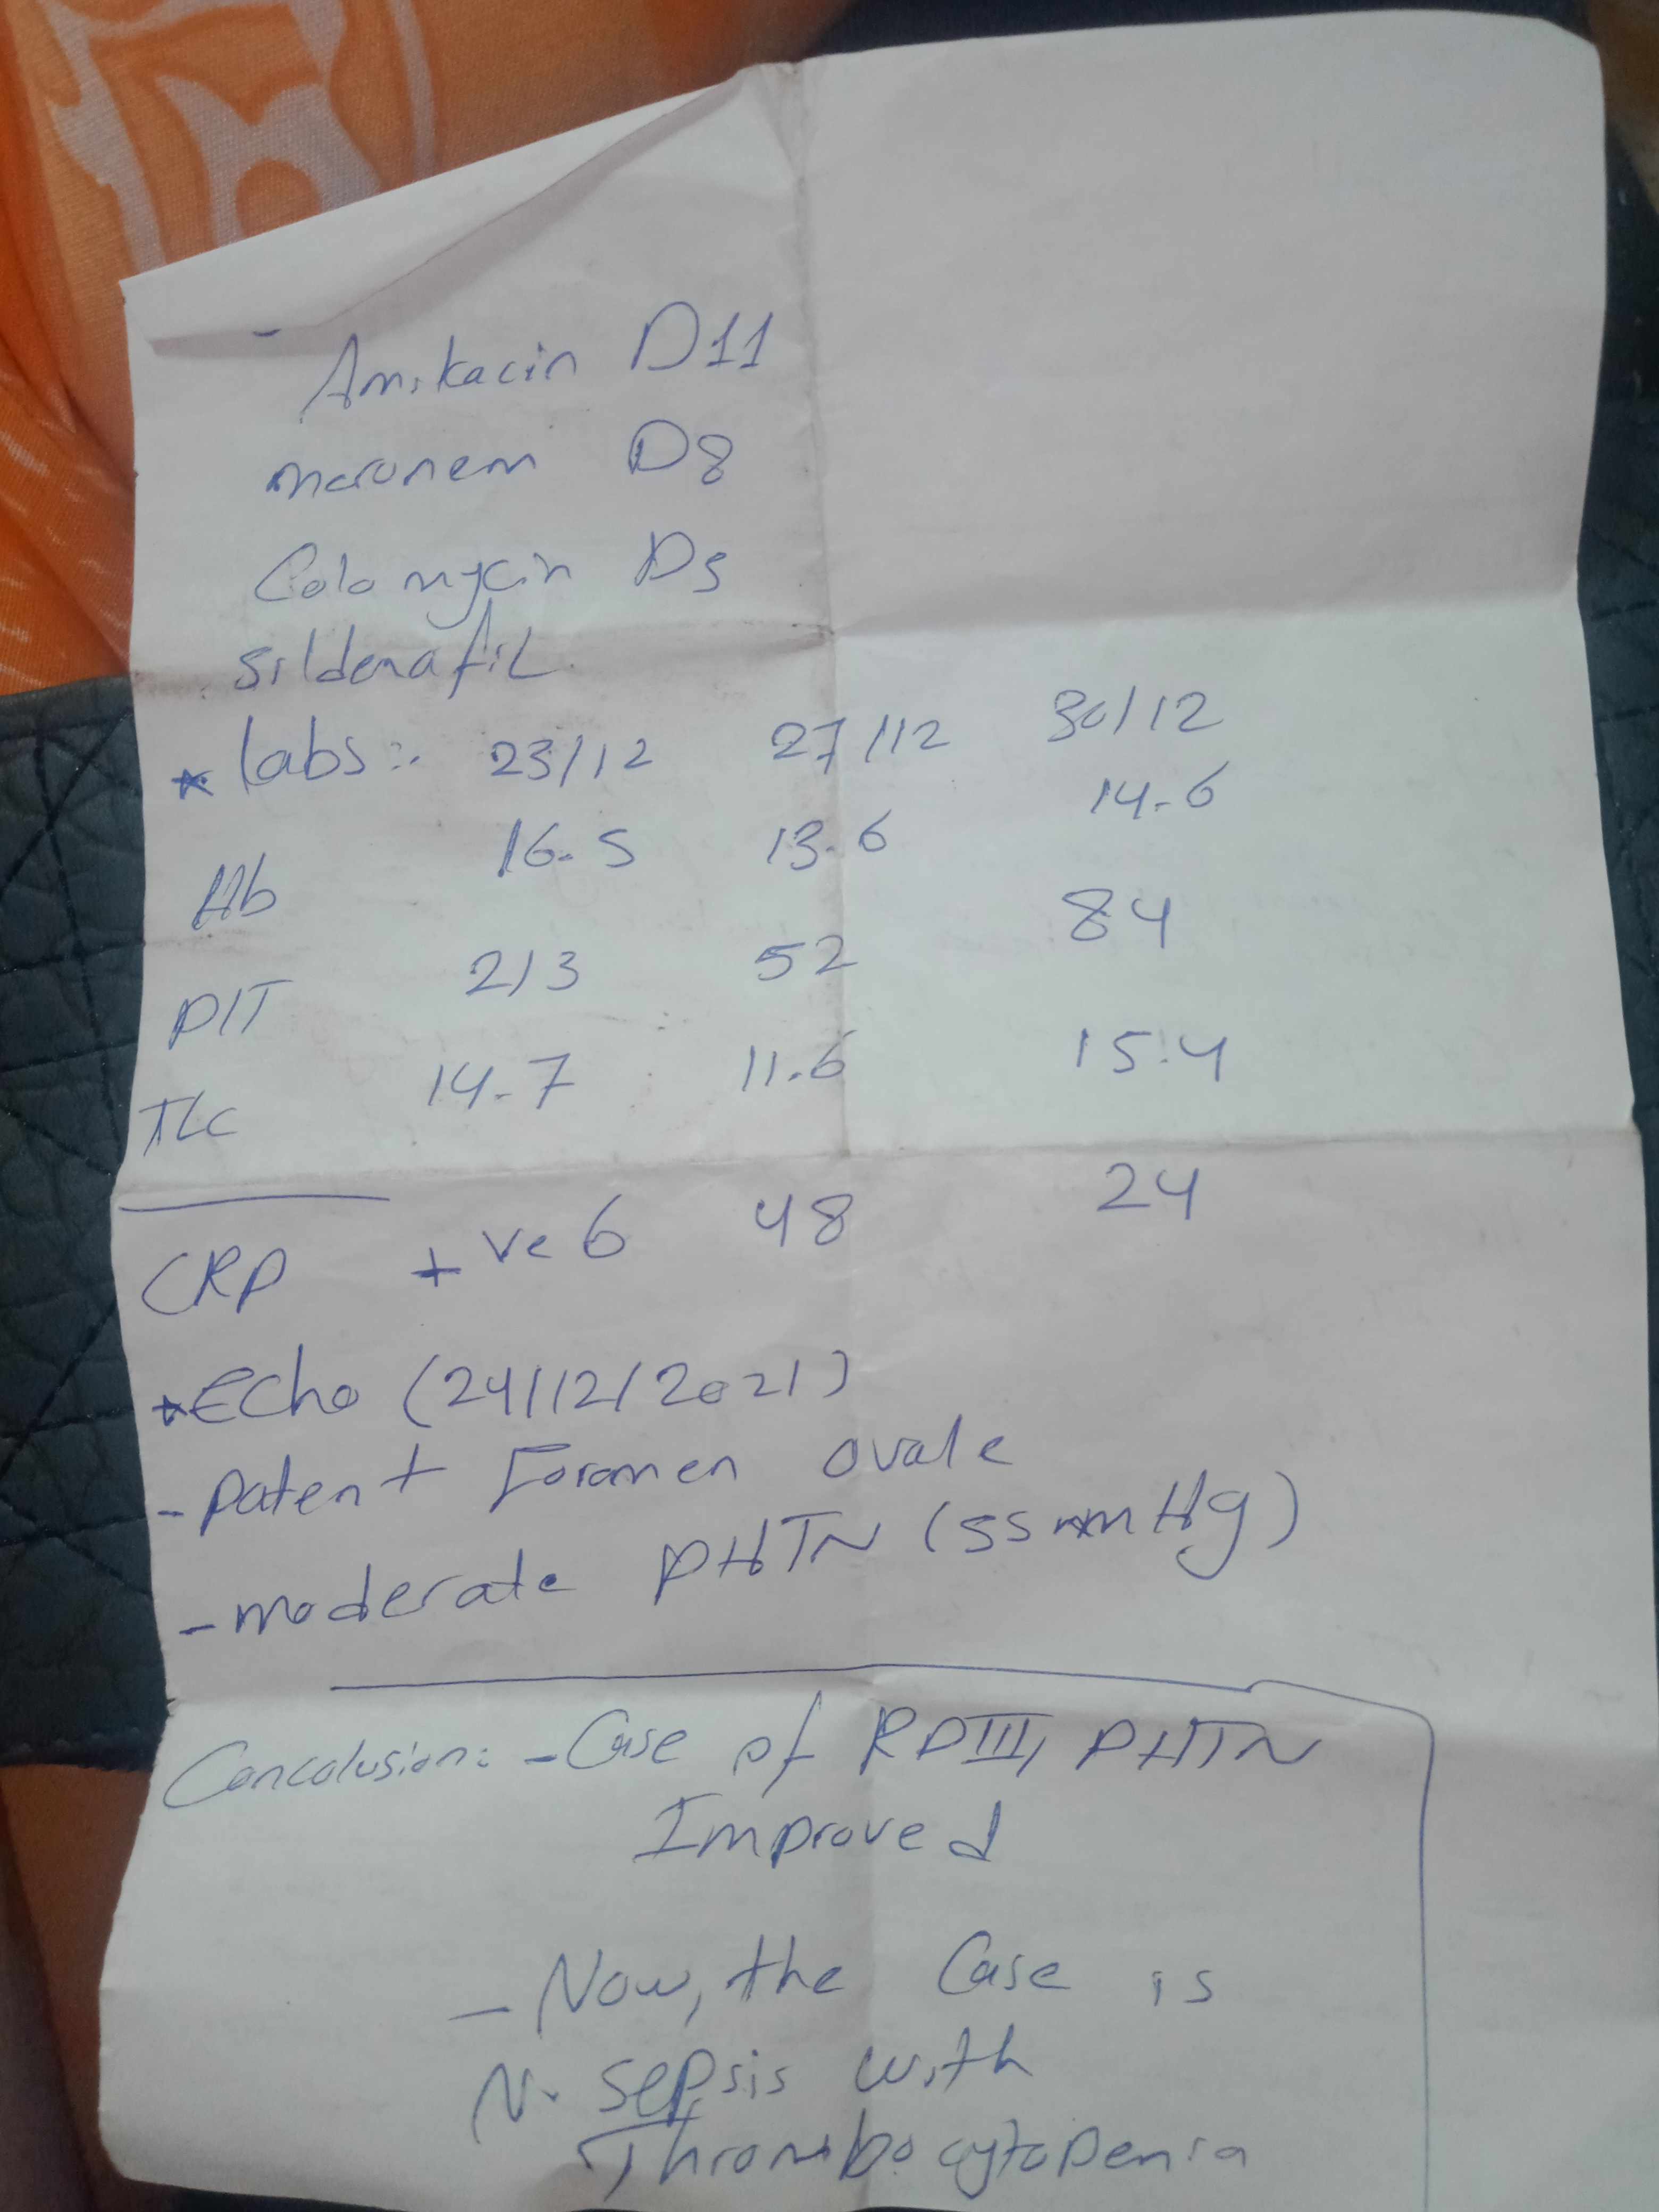 - Amikacin D11
meronem D8
Colomycin D5
sildenafil
* labs:- 23/12 27/12 30/12
Hb 16.5 13.6 14.6
PlT 213 52 84
TLC 14.7 11.6 15.4
CRP +ve 6 48 24
* Echo (24/12/2021)
- patent Foramen ovale
- moderate PHTN (55 mmHg)
Concolusion: - Case of RDIII, PHTN
Improved
- Now, the Case is
N. sepsis with
Thrombocytopenia